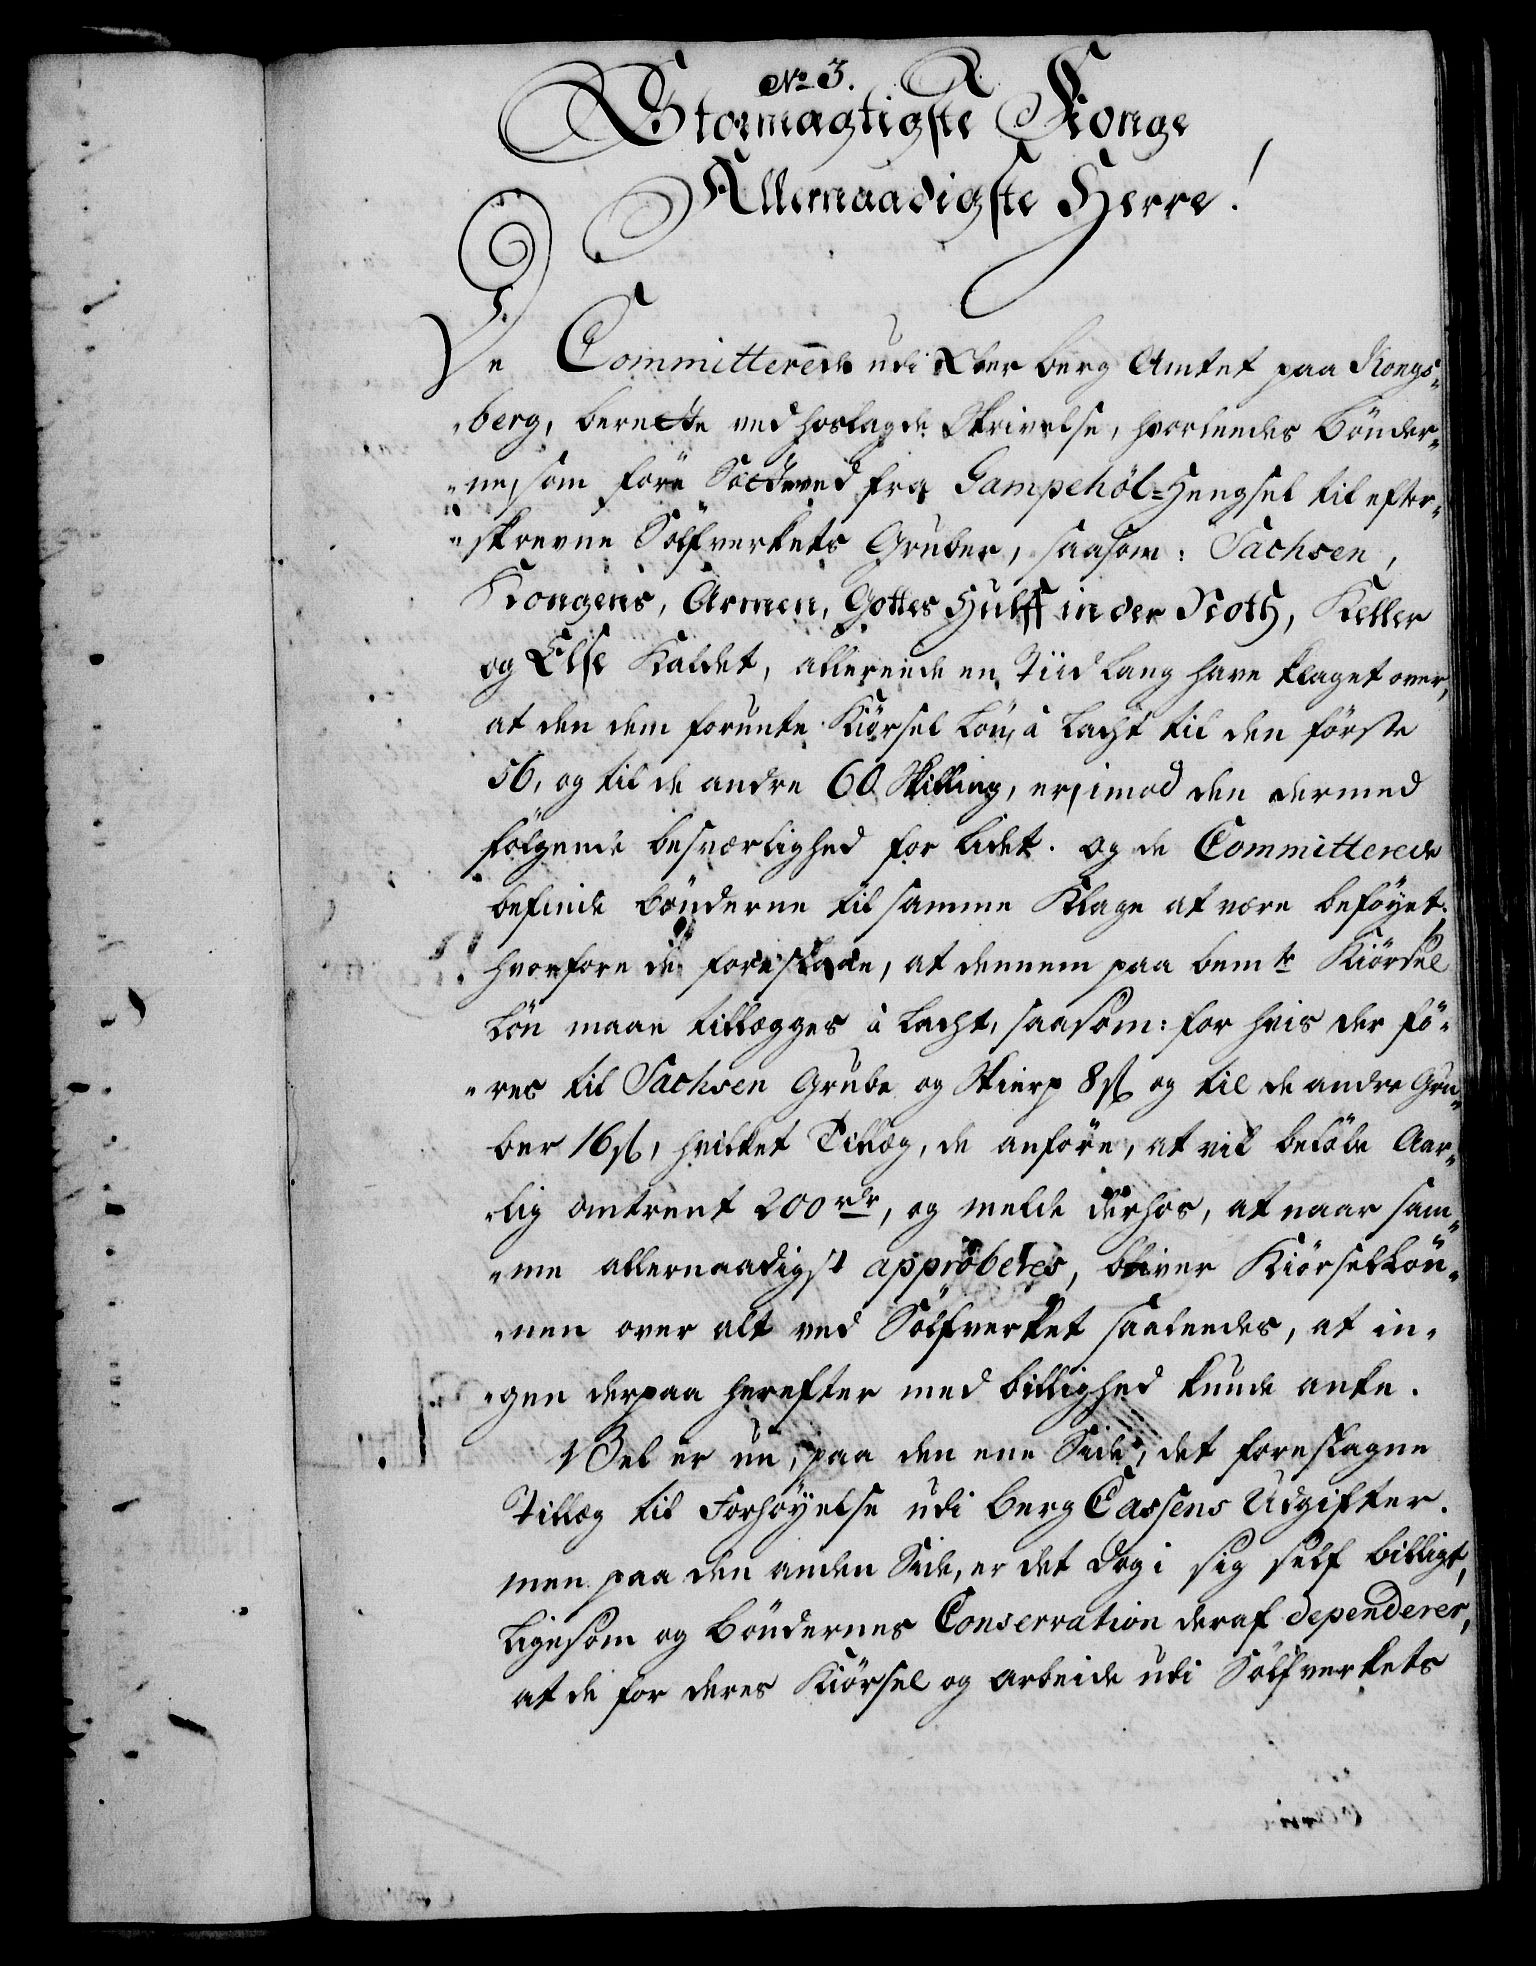 No 3.
Stormægtigste Konge
Allernaadigste Herre!
De Committerede udi Ober berg Amtet paa Kongs-
berg, berette ved hoslagde Skrivelse, hvorleedes Bönder-
ne, som före Sædeved fra Gampehöl-Hengsel til efter-
skrevne Sölfverkets Gruber, saasom: Sachsen,
Kongens, Armen, Gottes Hülff in der Noth, Keller
og Else kaldet, allereede en Tiid lang have klaget over,
at den dem forunte Kiörsel Lön, à Lacht til den förste
56, og til de andre 60 Skilling, er, imod den dermed
fölgende besværlighed for lidet. og de Committerede
befinde bönderne til samme Klage at være beföyet.
hvorfore de foreslaae, at dennem paa bemte Kiörsel
Lön maae tillægges à Lacht, saasom: for hvis der fö-
res til Sachsen Grube og Skierp 8 s. og til de andre Gru-
ber 16 s., hvilket Tillæg, de anföre, at vil belöbe Aar-
lig omtrent 200 rdr, og melde derhos, at naar sam-
me allernaadigst approberes, bliver Kiörsellön-
nen over alt ved Sölfverket saaleedes, at in-
gen derpaa herefter med billighed kunde anke.
Vel er nu, paa den ene Side, det foreslagne
Tillæg til Forhöyelse udi berg Cassens Udgifter.
men paa den anden Side, er det dog i sig self billigt,
ligesom og böndernes Conservation deraf dependerer,
at de for deres Kiörsel og arbeide udi Sölfverkets